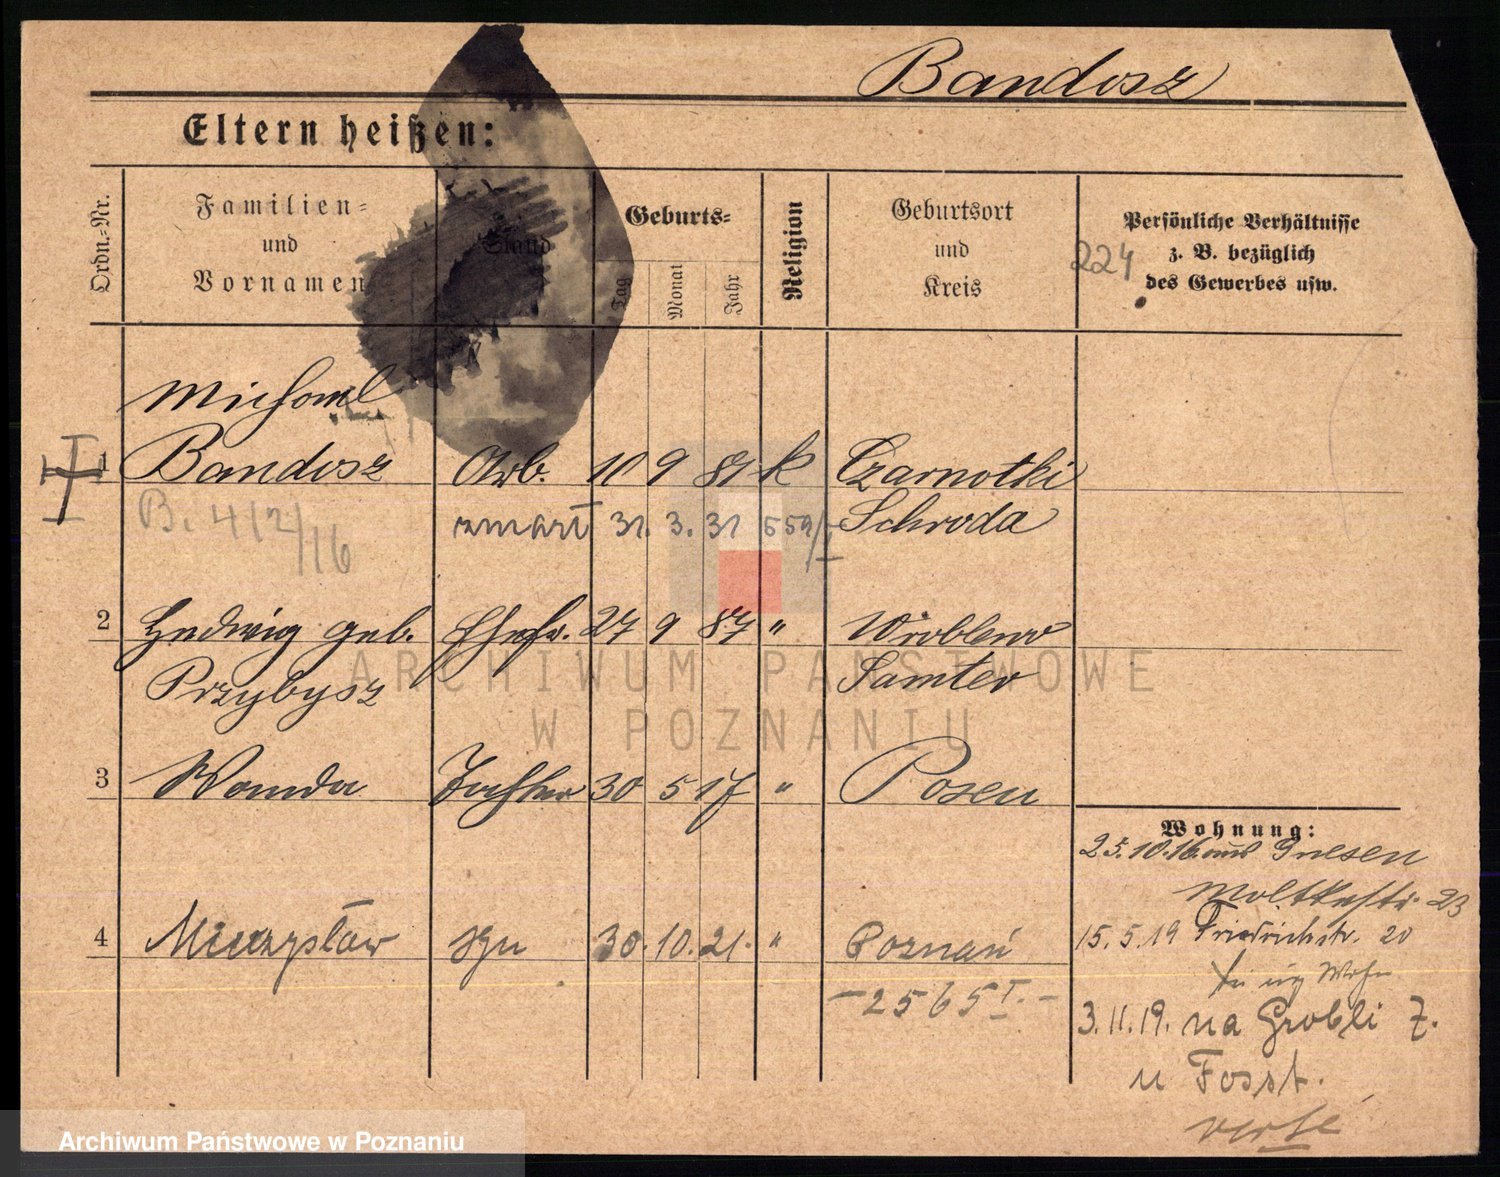 Bandosz
Eltern heißen:
Ordn.-Nr.
Familien-
und
Vornamen
Stand
Geburts-
Tag
Monat
Jahr
Religion
Geburtsort
und
Kreis
Persönliche Verhältnisse
z. B. bezüglich
des Gewerbes usw.
224
Michael
1 Bandosz Arb. 10 9 81 k Czarnotki
B. 412/16 zmarł 31. 3. 31 559/I Schroda
2 Hedwig geb. Ehefr. 27 9 87 " Wroblewo
Przybysz Samter
3 Wanda Tochter 30 5 17 " Posen
Wohnung:
25.10.16 aus Gnesen
Moltkestr. 23
4 Mieczysław syn 30. 10. 21. " Poznań
15.5.19 Friedrichstr. 20
- 2565 I. -
3.11.19. na Grobli 7.
u Fosst.
verte
ARCHIWUM PAŃSTWOWE
W POZNANIU
Archiwum Państwowe w Poznaniu